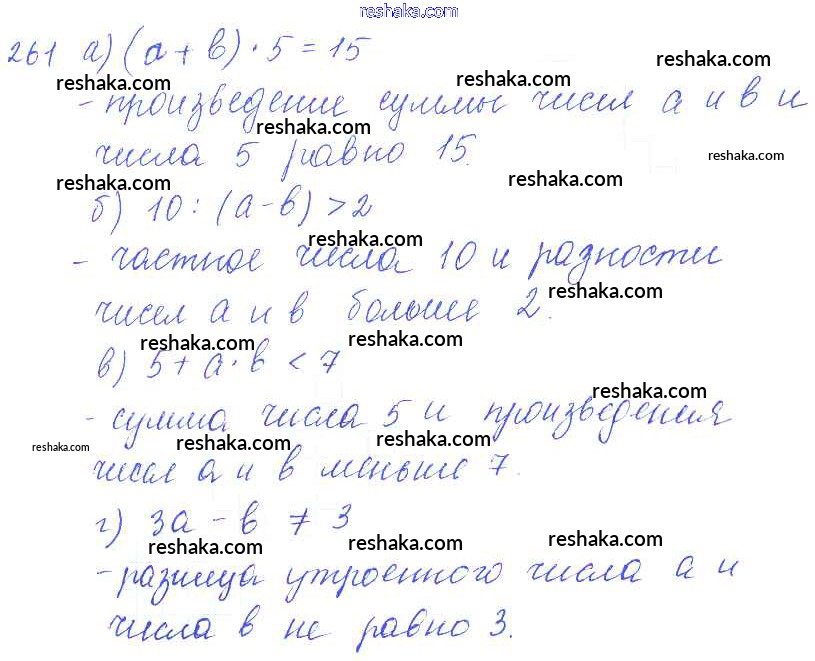 reshaka.com
261 а) (а + в) · 5 = 15
reshaka.com reshaka.com reshaka.com
- произведение суммы чисел а и в и
reshaka.com
числа 5 равно 15.
reshaka.com
reshaka.com reshaka.com
б) 10 : (а - в) > 2
reshaka.com
- частное числа 10 и разности
reshaka.com
чисел а и в больше 2.
reshaka.com reshaka.com
в) 5 + а · в < 7
reshaka.com
- сумма числа 5 и произведения
reshaka.com reshaka.com reshaka.com
чисел а и в меньше 7.
г) 3а - в ≠ 3
reshaka.com reshaka.com reshaka.com
- разница утроенного числа а и
числа в не равно 3.